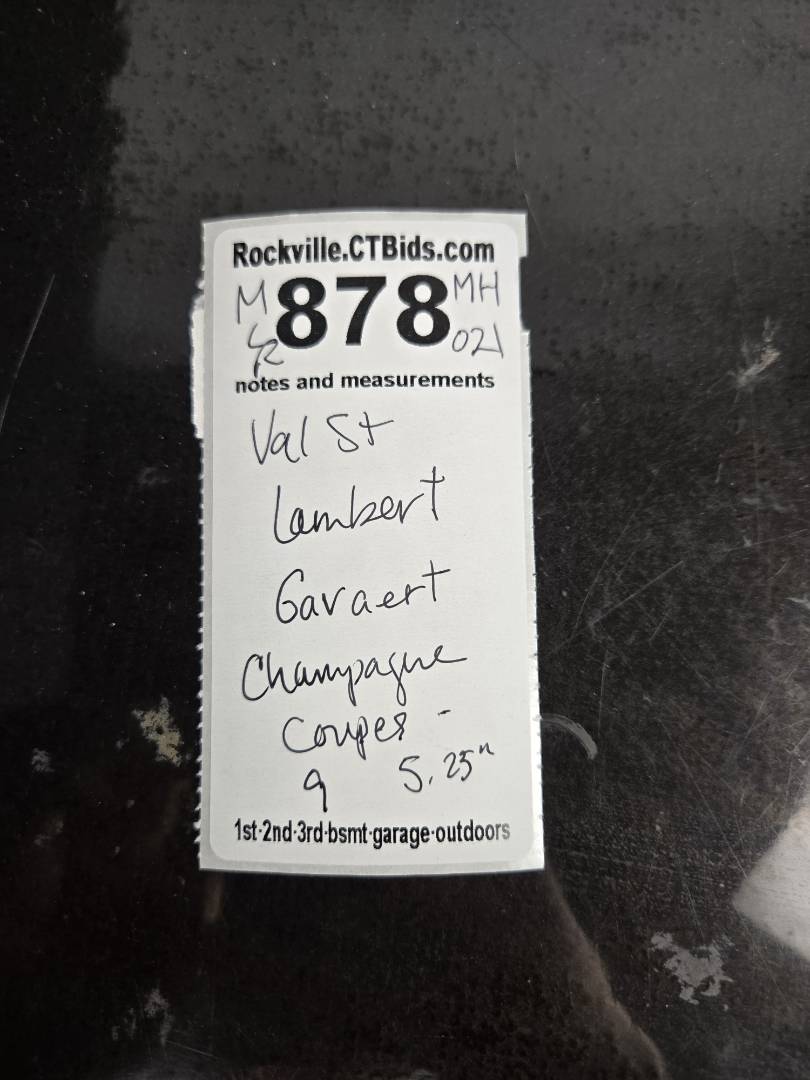 Rockville.CTBids.com
M 878 MH
021
notes and measurements
Val St
Lambert
Gavaert
Champagne
Coupes -
9 5.25"
1st·2nd·3rd·bsmt·garage·outdoors